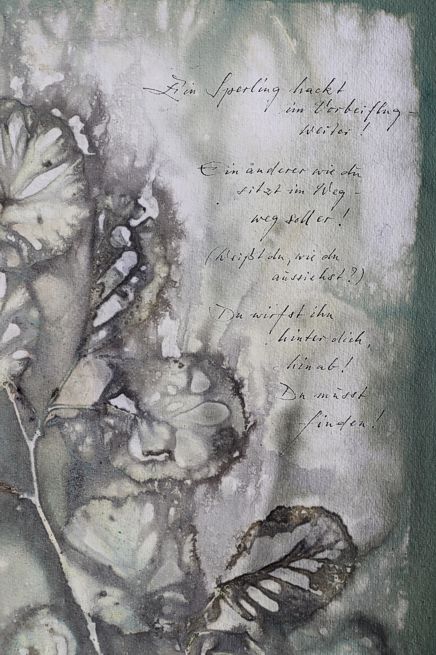 Ein Sperling hackt
im Vorbeiflug -
weiter!
Ein anderer wie du
sitzt im Weg -
weg soll er!
(Weißt du, wie du
aussiehst?)
Du wirfst ihn
hinter dich,
hinab!
Du musst
finden!